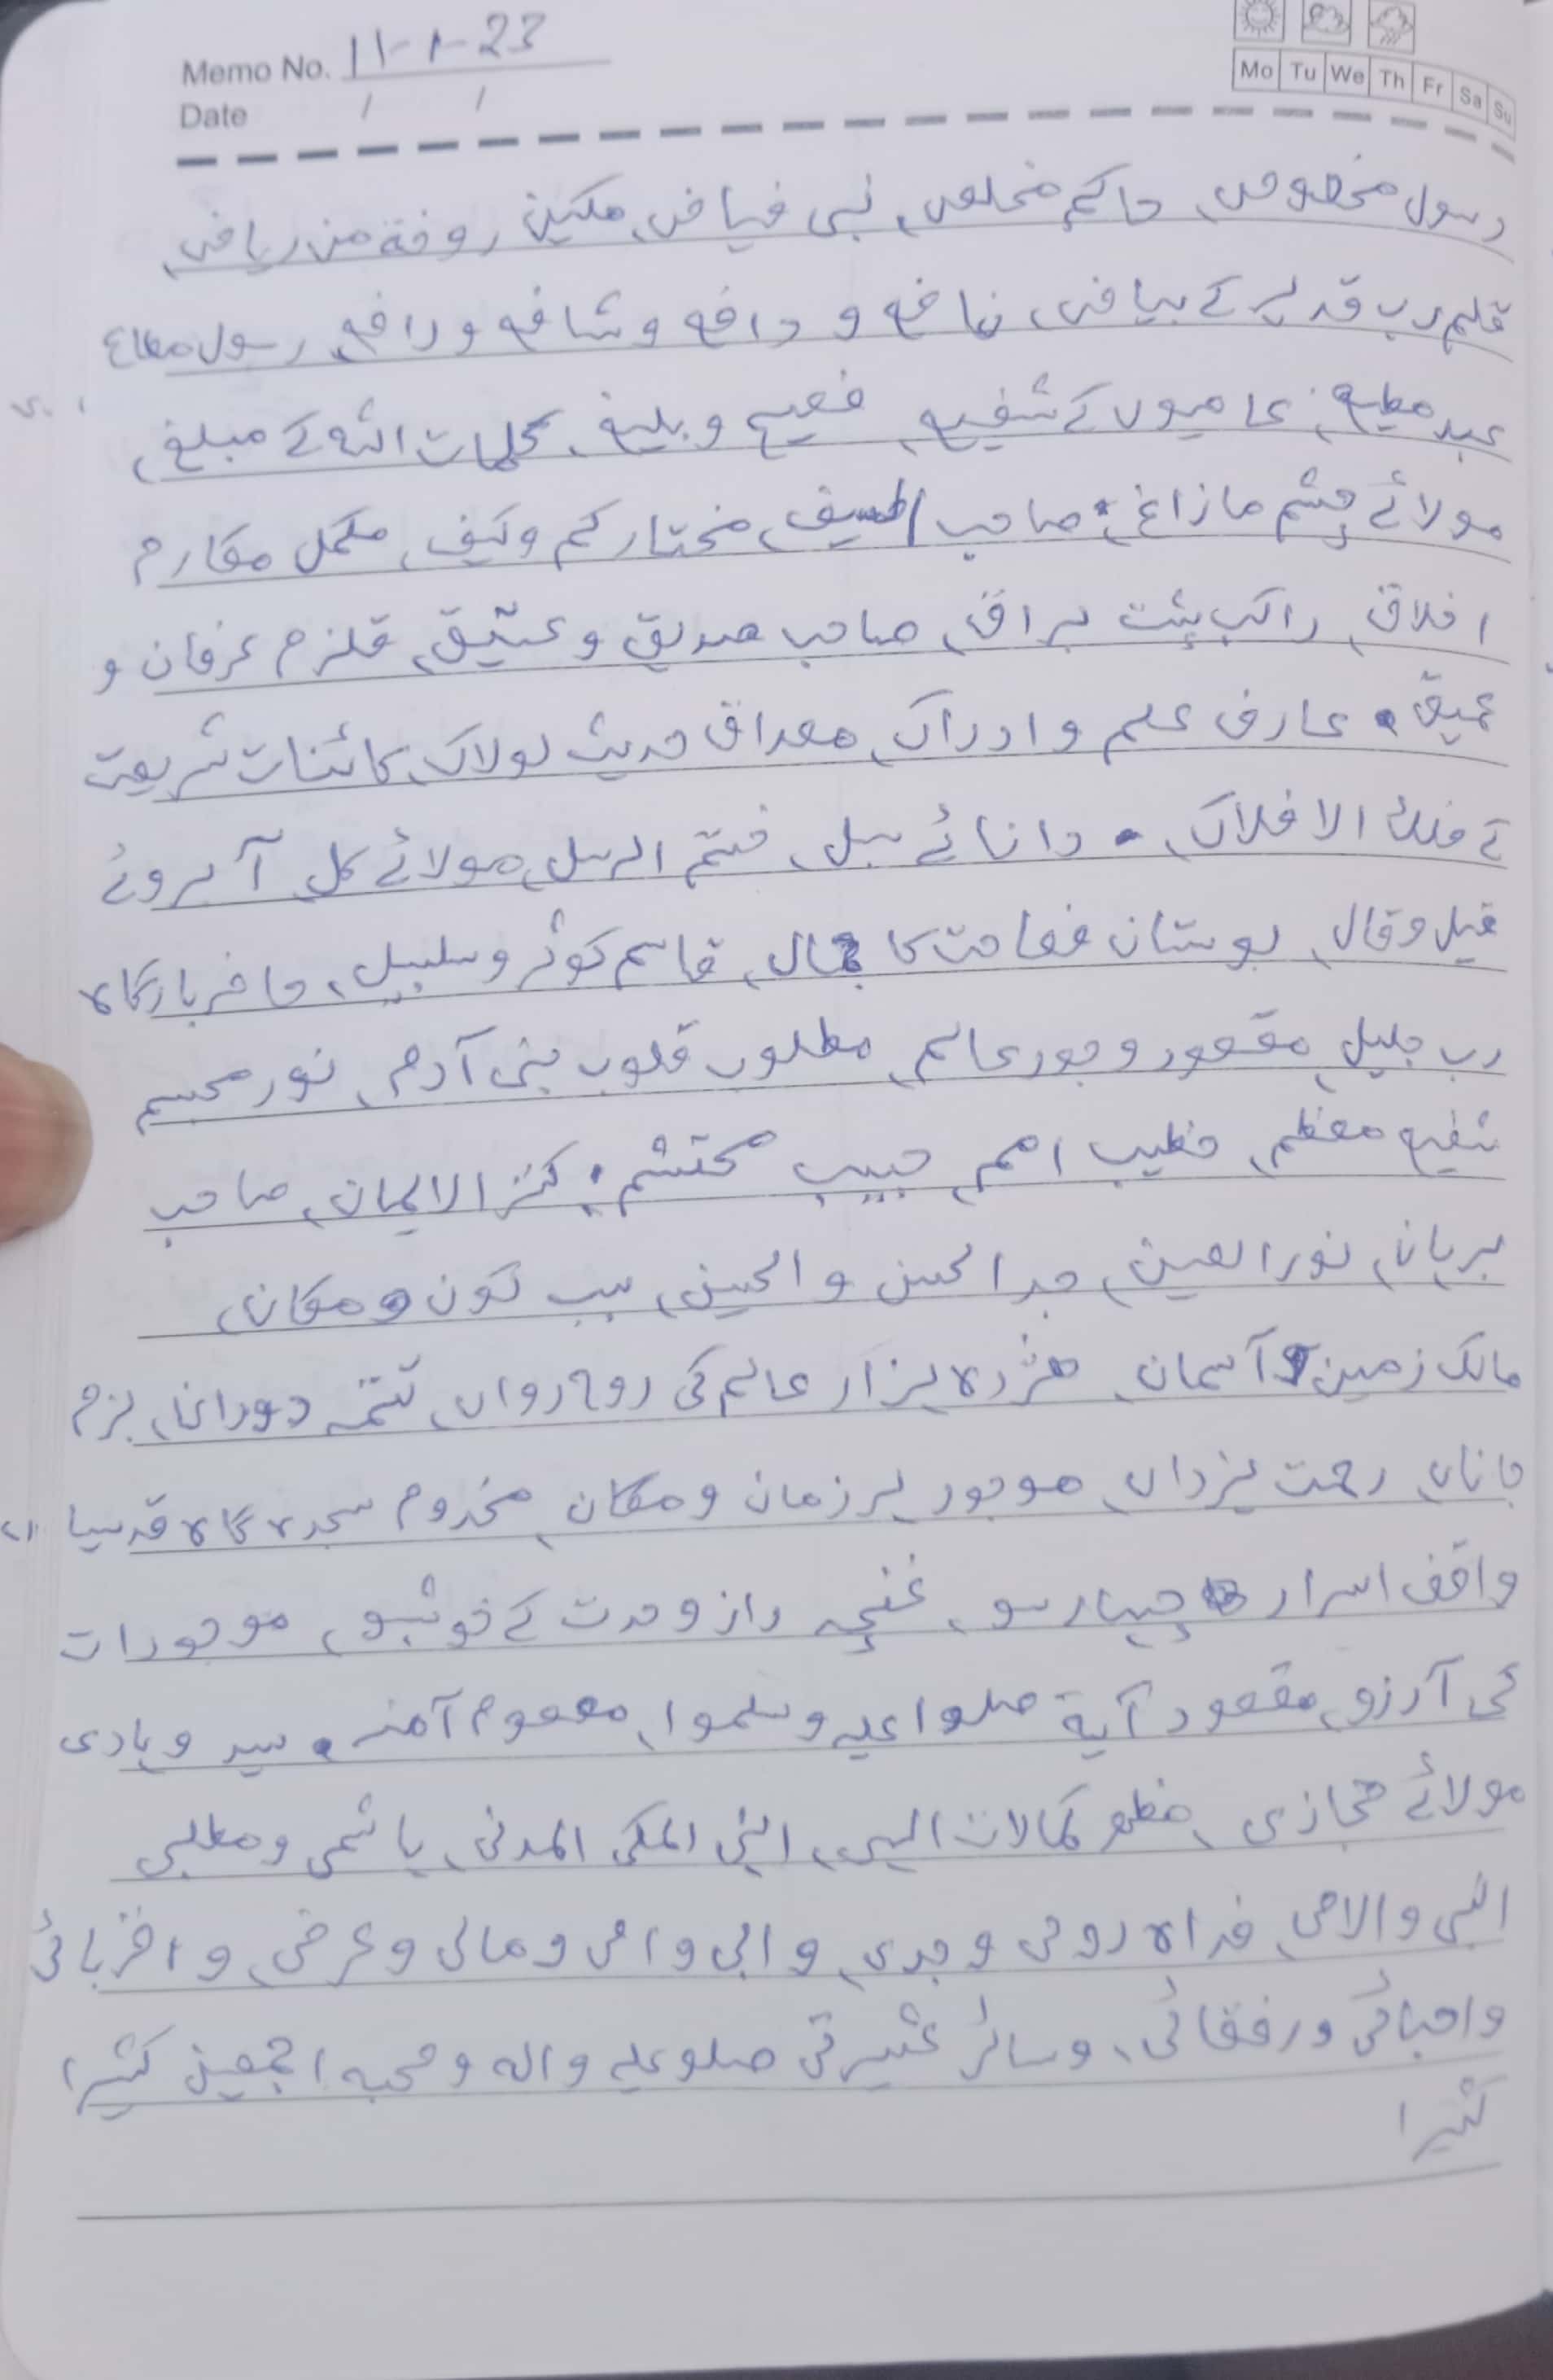 Memo No. 11-1-23
Date / /
Mo Tu We Th Fr Sa Su
رسول مخصوص، حاکم مخلص، نبی فیاض، مکین روضۃ من ریاض،
قلم رب قدیر کے بیاض، نافع و دافع و شافع و رافع، رسول مطاع
عبد مطیع، عاصیوں کے شفیع، فصیح و بلیغ، کلمات اللہ کے مبلغ،
مولائے چشم مازاغ، صاحب السیف، مختار کم وکیف، مکمل مکارم
اخلاق، راکب پشت براق، صاحب صدیق و عتیق، قلزم عرفان و
عمیق، عارف علم و ادراک، مصداق حدیث لولاک، کائنات شریعت
کے فلک الافلاک، دانائے سبل، ختم الرسل، مولائے کل، آبروئے
قیل وقال، بوستان فصاحت کا جمال، قاسم کوثر و سلسبیل، حاضر بارگاہ
رب جلیل، مقصود وجود عالم، مطلوب قلوب بنی آدم، نور مجسم
شفیع معظم، خطیب امم، حبیب محتشم، کنز الایمان، صاحب
برہان، نور العین، جد الحسن و الحسین، سبب کون و مکان،
مالک زمین و آسمان، ہزار عالم کی روح رواں، تتمہ دوراں، بزم
جاناں، رحمت یزداں، موجود ہر زمان و مکان، مخدوم سجدہ گاہ قدسیاں
واقف اسرار چہار سو، غنچہ راز وحدت کے خوشبو، موجودات
کی آرزو، مقصود آیۃ صلوا علیہ وسلموا، معصوم آمنہ، سید و ہادی
مولائے حجازی، مظہر کمالات الہی، النبی المکی المدنی، ہاشمی و مطلبی
النبی والامی، فداہ روحی و جدی، و ابی و امی و مالی و عرضی، و اقربائی
واحبائی ورفقائی، وسائر عشیرتی صلو علیہ والہ و صحبہ اجمعین کثیرا
کثیرا